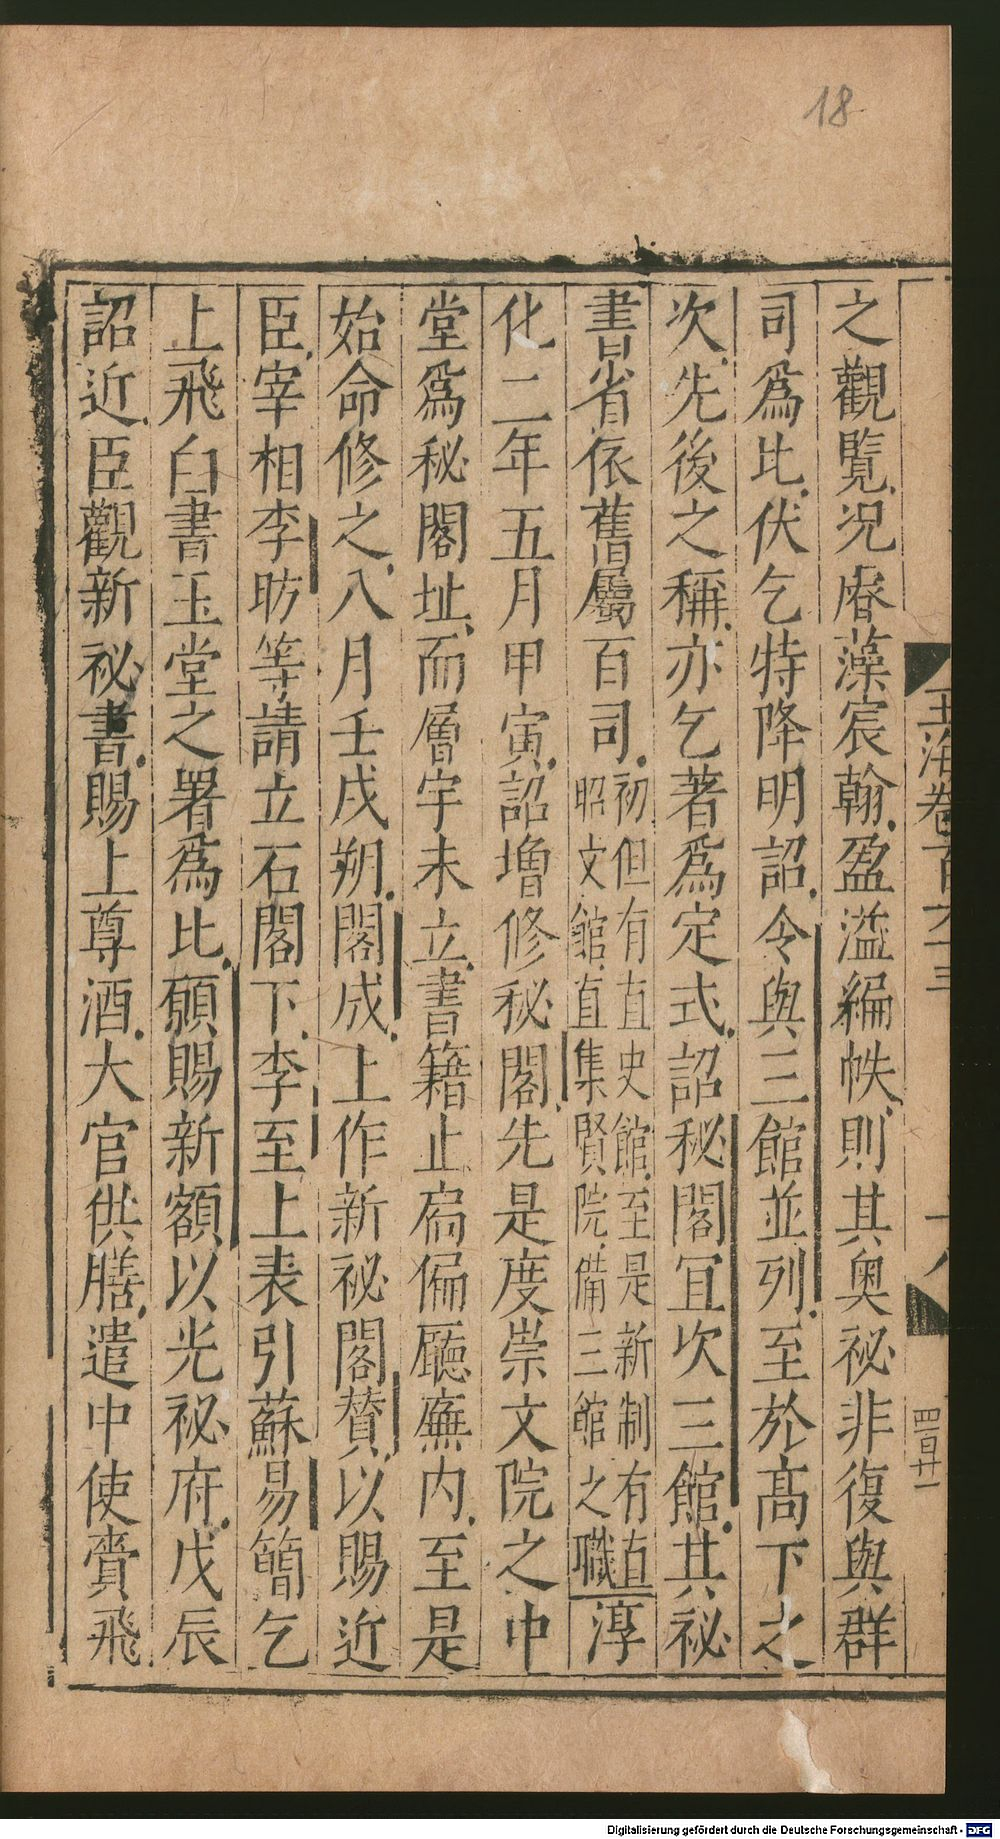 18
玉海卷百六十三
十八
四百廿一
之觀覽况睿藻宸翰盈溢編帙則其奥祕非復與群
司爲比伏乞特降明詔令與三館並列至於髙下之
次先後之稱亦乞著爲定式詔秘閣宜次三館其祕
書省依舊屬百司初但有直史館至是新制有直昭文館直集賢院備三館之職淳
化二年五月甲寅詔增修秘閣先是度崇文院之中
堂爲秘閣址而層宇未立書籍止扃偏廳廡内至是
始命修之八月壬戌朔閣成上作新祕閣賛以賜近
臣宰相李昉等請立石閣下李至上表引蘇易簡乞
上飛白書玉堂之署爲比願賜新額以光祕府戊辰
詔近臣觀新祕書賜上尊酒大官供膳遣中使賫飛
Digitalisierung gefördert durch die Deutsche Forschungsgemeinschaft - DFG